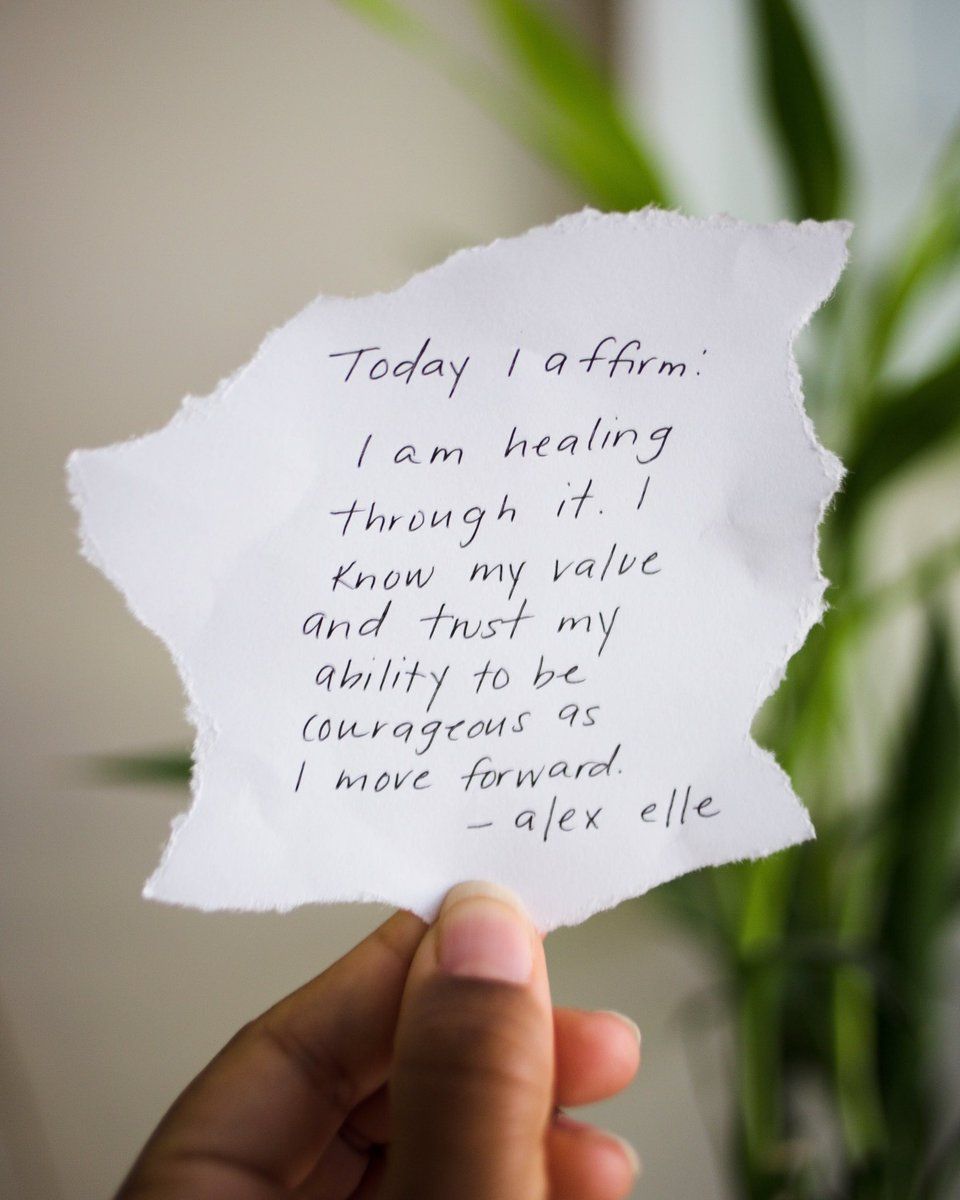 Today I affirm:
I am healing
through it. I
know my value
and trust my
ability to be
courageous as
I move forward.
– alex elle